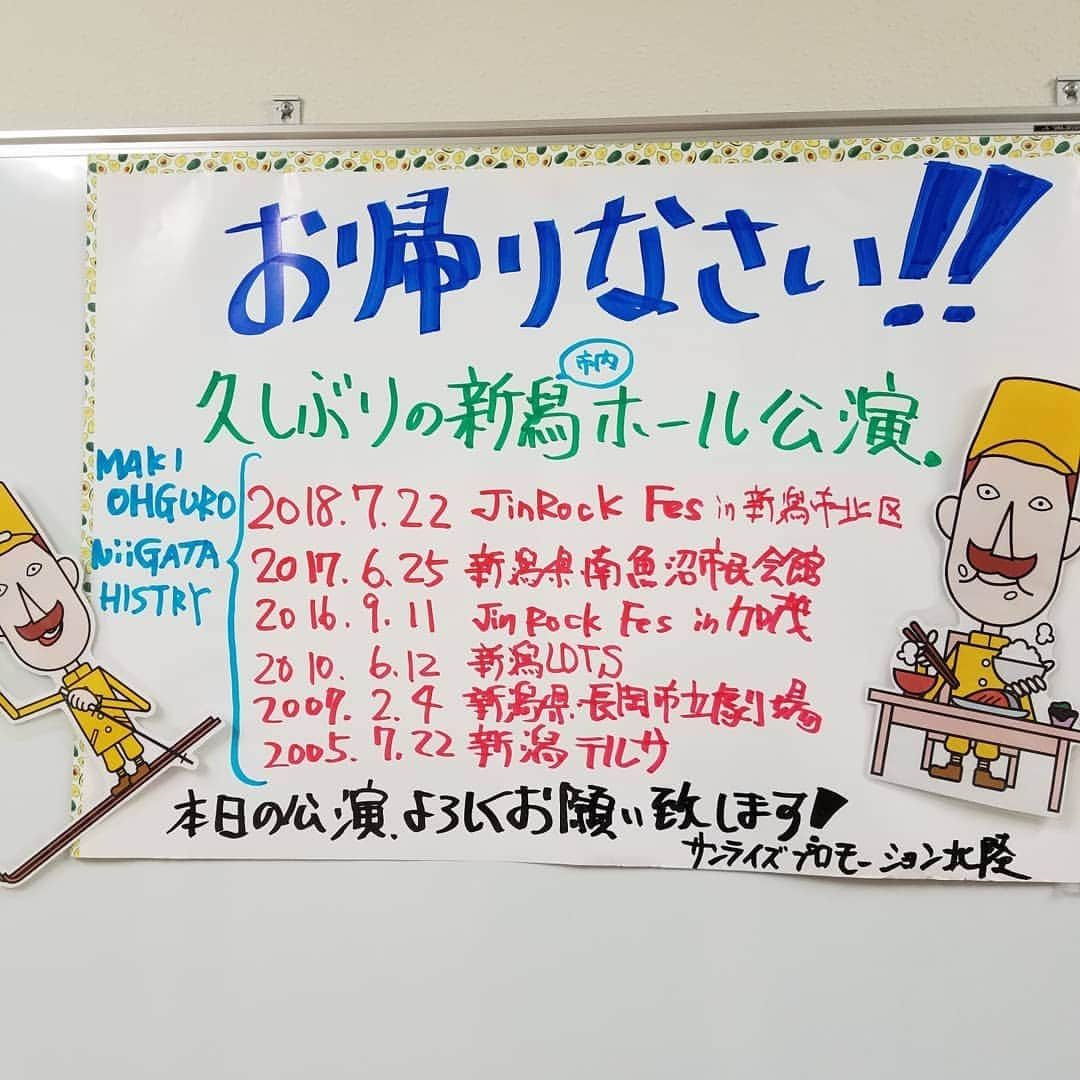 お帰りなさい!!
市内
久しぶりの新潟ホール公演。
MAKI
OHGURO
NiiGATA
HISTRY
2018.7.22 JinRock Fes in 新潟市北区
2017.6.25 新潟県南魚沼市民会館
2016.9.11 Jin Rock Fes in 加茂
2010.6.12 新潟LOTS
2009.2.4 新潟県長岡市立劇場
2005.7.22 新潟テルサ
本日の公演、よろしくお願い致します!
サンライズプロモーション北陸